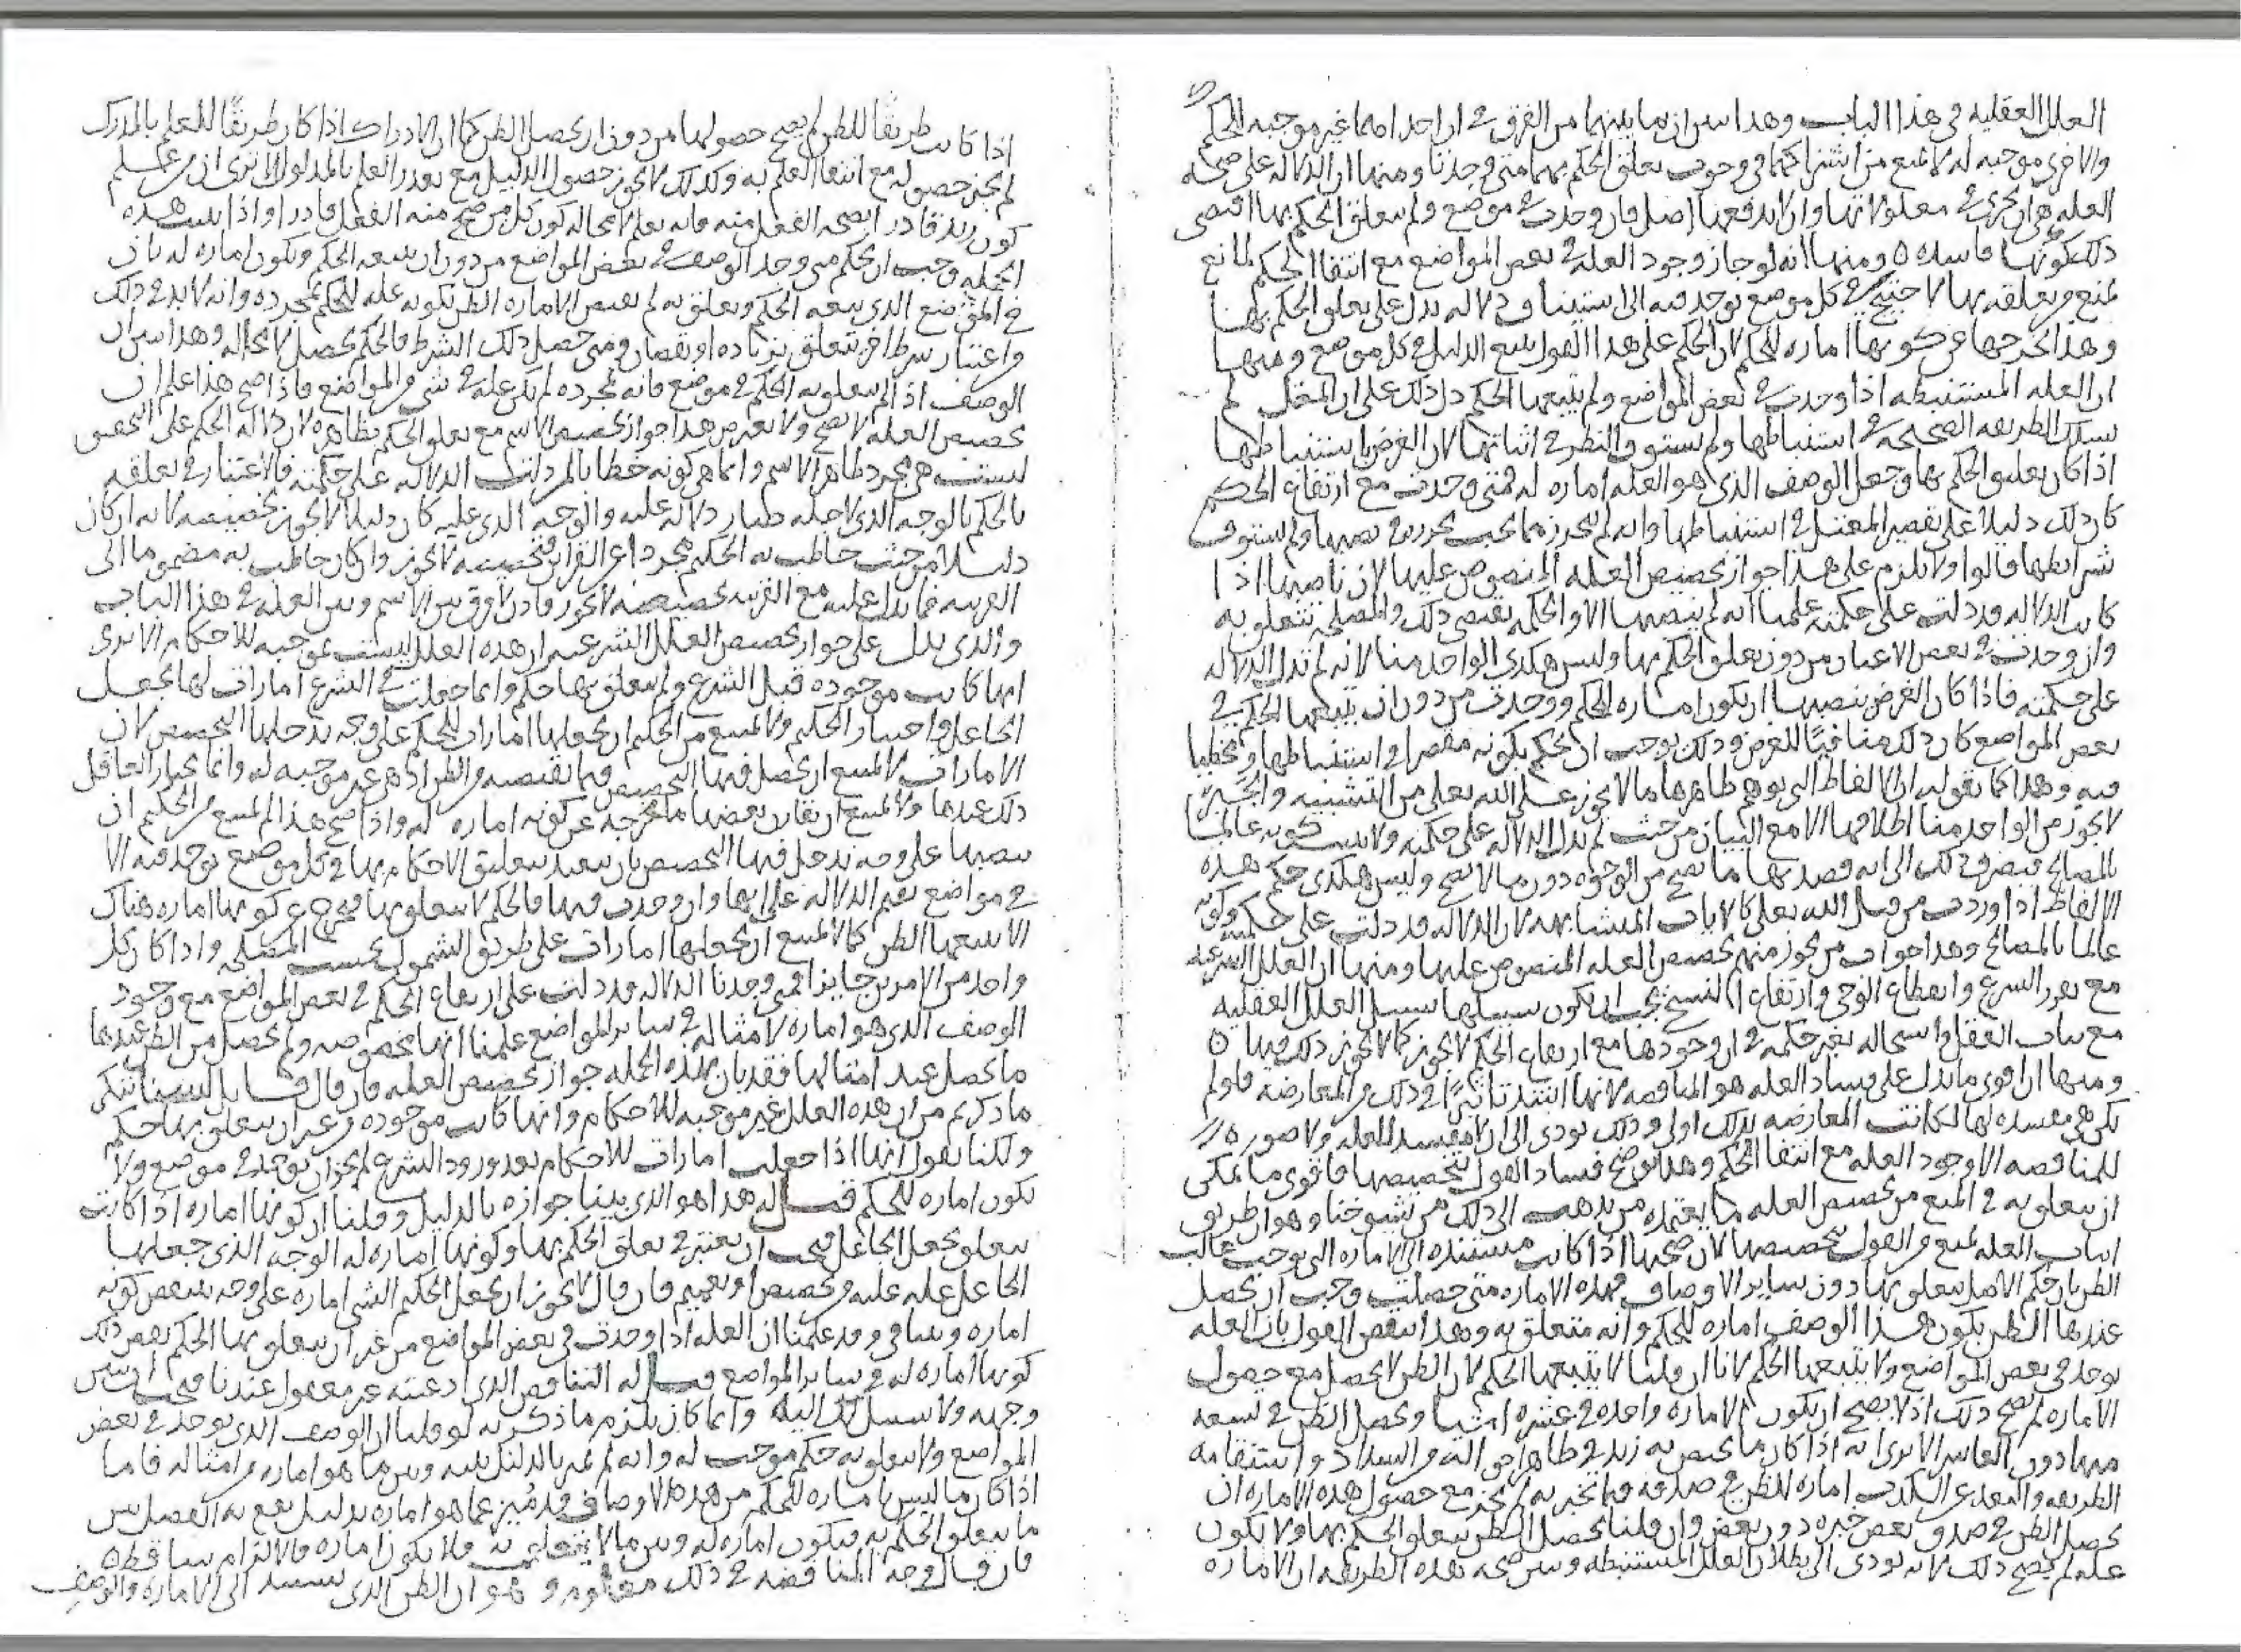 العلل العقليه في هذا الباب وهذا بين ان ما بينهما من الفرق في ان احداهما غير موجبه للحكم
والاخرى موجبه له لا تمنع من اشتراكهما في وجوب تعلق الحكم بهما متى وجدتا ومنها ان الدلاله على صحه
العله هي ان تجري في معلولاتها وان لا يدفعها اصل فان وجدت في موضع ولم يتعلق الحكم بها اقتضى
ذلك كونها فاسده ٥ ومنها انه لو جاز وجود العله في بعض المواضع مع انتفا الحكم لمانع
لمنع من تعلقه بها لاحتيج في كل موضع توجد فيه الى استيناف دلاله تدل على تعلق الحكم بها
وهذا يخرجها من كونها اماره للحكم لان الحكم على هذا القول يتبع الدليل في كل موضع ومنها
ان العله المستنبطه اذا وجدت في بعض المواضع ولم يتبعها الحكم دل ذلك على ان المعتل لم
يسلك الطريقه الصحيحه في استنباطها ولم يستوف النظر في اثباتها لان الغرض باستنباطها
اذا كان تعليق الحكم بها وجعل الوصف الذي هو العله اماره له فمتى وجدت مع ارتفاع الحكم
كان ذلك دليلا على تقصير المعتل في استنباطها وانه لم يتحرز مما يجب تحرزه في نصبها ولم يستوف
شرايطها قالوا ولا يلزم على هذا جواز تخصيص العله المنصوص عليها لان ناصبها اذا
كانت الدلاله قد دلت على حكمته علمنا انه لم ينصبها الا والحكمه تقتضي ذلك والمصلحه تتعلق به
وان وجدت في بعض الاعيان من دون تعلق الحكم بها وليس هكذى الواحد منا لانه لم تدل الدلاله
على حكمته فاذا كان الغرض بنصبها ان تكون اماره للحكم ووجدت من دون ان يتبعها الحكم في
بعض المواضع كان ذلك منافيًا للغرض وذلك يوجب ان نحكم بكونه مقصرا في استنباطها ومخطيا
فيه وهذا كما نقوله ان الالفاظ التي يوهم ظاهرها ما لا يجوز على الله تعالى من التشبيه والجبر
لا يجوز من الواحد منا اطلاقها الا مع البيان من حيث لم تدل الدلاله على حكمته ولا يثبت كونه عالما
بالمصالح فيصرف ذلك الى انه قصد بها ما يصح من الوجوه دون ما لا يصح وليس هكذى حكم هذه
الالفاظ اذا وردت من قبل الله تعالى كالايات المتشابهه لان الدلاله قد دلت على حكمته وكونه
عالما بالمصالح وهذا جواب من يجوز منهم تخصيص العله المنصوص عليها ومنها ان العلل الشرعيه
مع تقرر الشرع وانقطاع الوحي وارتفاع النسخ يجب ان يكون سبيلها سبيل العلل العقليه
مع ثبات العقل واستحاله تغير حكمه في ان وجودها مع ارتفاع الحكم لا يجوز كما لا يجوز ذلك فيها ٥
ومنها ان اقوى ما يدل على فساد العله هو المناقضه لانها اشد تاثيرًا في ذلك من المعارضه فلو لم
تكن مفسده لها لكانت المعارضه بذلك اولى وذلك يودي الى ان لا مفسد للعله ولا صوره
للمناقضه الا وجود العله مع انتفا الحكم وهذا يوضح فساد القول بتخصيصها فاقوى ما يمكن
ان يتعلق به في المنع من تخصيص العله ما يعتمده من يذهب الى ذلك من شيوخنا وهو ان طريق
اثبات العله تمنع من القول بتخصيصها لان صحتها اذا كانت مستنده الى الاماره التي توجب غالب
الظن بان حكم الاصل يتعلق بها دون ساير الاوصاف فهذه الاماره متى حصلت وجب ان يحصل
عندها الظن بكون هذا الوصف اماره للحكم وانه متعلق به وهذا ينقض القول بان العله
توجد في بعض المواضع ولا يتبعها الحكم لانا ان قلنا لا يتبعها الحكم لان الظن لا يحصل مع حصول
الاماره لم يصح ذلك اذ لا يصح ان يكون الاماره واحده في عشره اشيا ويحصل الظن في تسعه
منها دون العاشر الا ترى انه اذا كان ما يختص به زيد في ظاهر احواله من السداد واستقامه
الطريقه والبعد عن الكذب اماره للظن في صدقه فيما يخبر به لم يجز مع حصول هذه الاماره ان
يحصل الظن في صدق بعض خبره دون بعض وان قلنا يحصل الظن بتعلق الحكم بها ولا تكون
عله لم يصح ذلك لانه يودي الى بطلان العلل المستنبطه وبين صحه هذه الطريقه ان الاماره
اذا كانت طريقًا للظن لم يصح حصولها من دون ان يحصل الظن كما ان الادراك اذا كان طريقًا للعلم بالمدرك
لم يجز حصوله مع انتفا العلم به وكذلك لا يجوز حصول الدليل مع تعذر العلم بالمدلول الا ترى ان من علم
كون زيد قادرا بصحه الفعل منه فانه يعلم لا محاله كون كل من صح منه الفعل قادرا واذا ثبت هذه
الجمله وجب ان يحكم متى وجد الوصف في بعض المواضع من دون ان يتبعه الحكم وتكون اماره له بان
في الموضع الذي يتبعه الحكم ويتعلق به لم تقتض الاماره الظن بكونه عله للحكم بمجرده وانه لا بد في ذلك
واعتبار شرط اخر يتعلق بزياده او نقصان ومتى حصل ذلك الشرط فالحكم يحصل لا محاله وهذا بين ان
الوصف اذا لم يتعلق به الحكم في موضع فانه بمجرده لم يكن عله في شي من المواضع فاذا صح هذا علم ان
تخصيص العله لا يصح ولا يعترض هذا جواز تخصيص الاسم مع تعلق الحكم بظاهره لان دلاله الحكم على التحقيق
ليست هي مجرد ظاهر الاسم وانما هي كونه خطابا لمن دلت الدلاله على حكمته فالاعتبار في تعلقه
بالحكم بالوجه الذي لاجله صار دلاله عليه والوجه الذي عليه كان دليلا لا يجوز تخصيصه لانه ان كان
دليلا من حيث خاطب به الحكيم مجردا عن القراين فتخصيصه لا يجوز وان كان خاطب به مضموما الى
القرينه فما يدل عليه مع القرينه تخصيصه لا يجوز فاذن لا فرق بين الاسم وبين العله في هذا الباب
والذي يدل على جواز تخصيص العلل الشرعيه ان هذه العلل ليست موجبه للاحكام الا ترى
انها كانت موجوده قبل الشرع ولم يتعلق بها حكم وانما جعلت في الشرع امارات لها بجعل
الجاعل واختيار الحكيم ولا يمتنع من الحكيم ان يجعلها امارات للحكم على وجه يدخلها التخصيص لان
الامارات لا يمتنع ان يحصل فيها التخصيص فيما تقتضيه من الظن اذ هي غير موجبه له وانما يختار العاقل
ذلك عندها ولا يمتنع ان يقارن بعضها ما يخرجه عن كونه اماره له واذا صح هذا لم يمتنع من الحكيم ان
ينصبها على وجه يدخل فيها التخصيص بان يتعبد بتعليق الاحكام بها في كل موضع توجد فيه الا
في مواضع تقوم الدلاله على انها وان وجدت فيها فالحكم لا يتعلق بها فيخرج عن كونها اماره هناك
لا يتبعها الظن كما لا يمتنع ان يجعلها امارات على طريق الشمول بحسب المصلحه واذا كان كل
واحد من الامرين جايزا فمتى وجدنا الدلاله قد دلت على ارتفاع الحكم في بعض المواضع مع وجود
الوصف الذي هو اماره لامثاله في ساير المواضع علمنا انها مخصوصه ولم يحصل من الظن عندها
ما يحصل عند امثالها فقد بان بهذه الجمله جواز تخصيص العله فان قال قايل لسنا ننكر
ما ذكرتم من ان هذه العلل غير موجبه للاحكام وانها كانت موجوده من غير ان يتعلق بها حكم
ولكنا نقول انها اذا جعلت امارات للاحكام بعد ورود الشرع لم يجز ان توجد في موضع ولا
تكون اماره للحكم قيل له هذا هو الذي بينا جوازه بالدليل وقلنا ان كونها اماره اذا كانت
يتعلق بجعل الجاعل فيجب ان يعتبر في تعلق الحكم بها وكونها اماره له الوجه الذي جعلها
الجاعل عليه من تخصيص او تعميم فان قال لا يجوز ان يجعل الحكيم الشي اماره على وجه ينقض كونه
اماره وينافي وقد علمنا ان العله اذا وجدت في بعض المواضع من غير ان يتعلق بها الحكم نقض ذلك
كونها اماره له في ساير المواضع قيل له التناقض الذي ادعيته غير معقول عندنا فيجب ان تبين
وجهه ولا سبيل لك اليه وانما كان يلزم ما ذكرته لو قلنا ان الوصف الذي يوجد في بعض
المواضع ولا يتعلق به حكم موجب له وانه لم يميز بالدليل بينه وبين ما هو اماره من امثاله فاما
اذا كان ما ليس باماره للحكم من هذه الاوصاف قد مُيز مما هو اماره بدليل يقع به الفصل بين
ما يتعلق الحكم به فيكون اماره له وبين ما لا يتعلق به فلا يكون اماره فالالزام ساقط ٥
فان قيل وجه المناقضه في ذلك معلوم وهو ان الظن الذي يستند الى الاماره والوصف